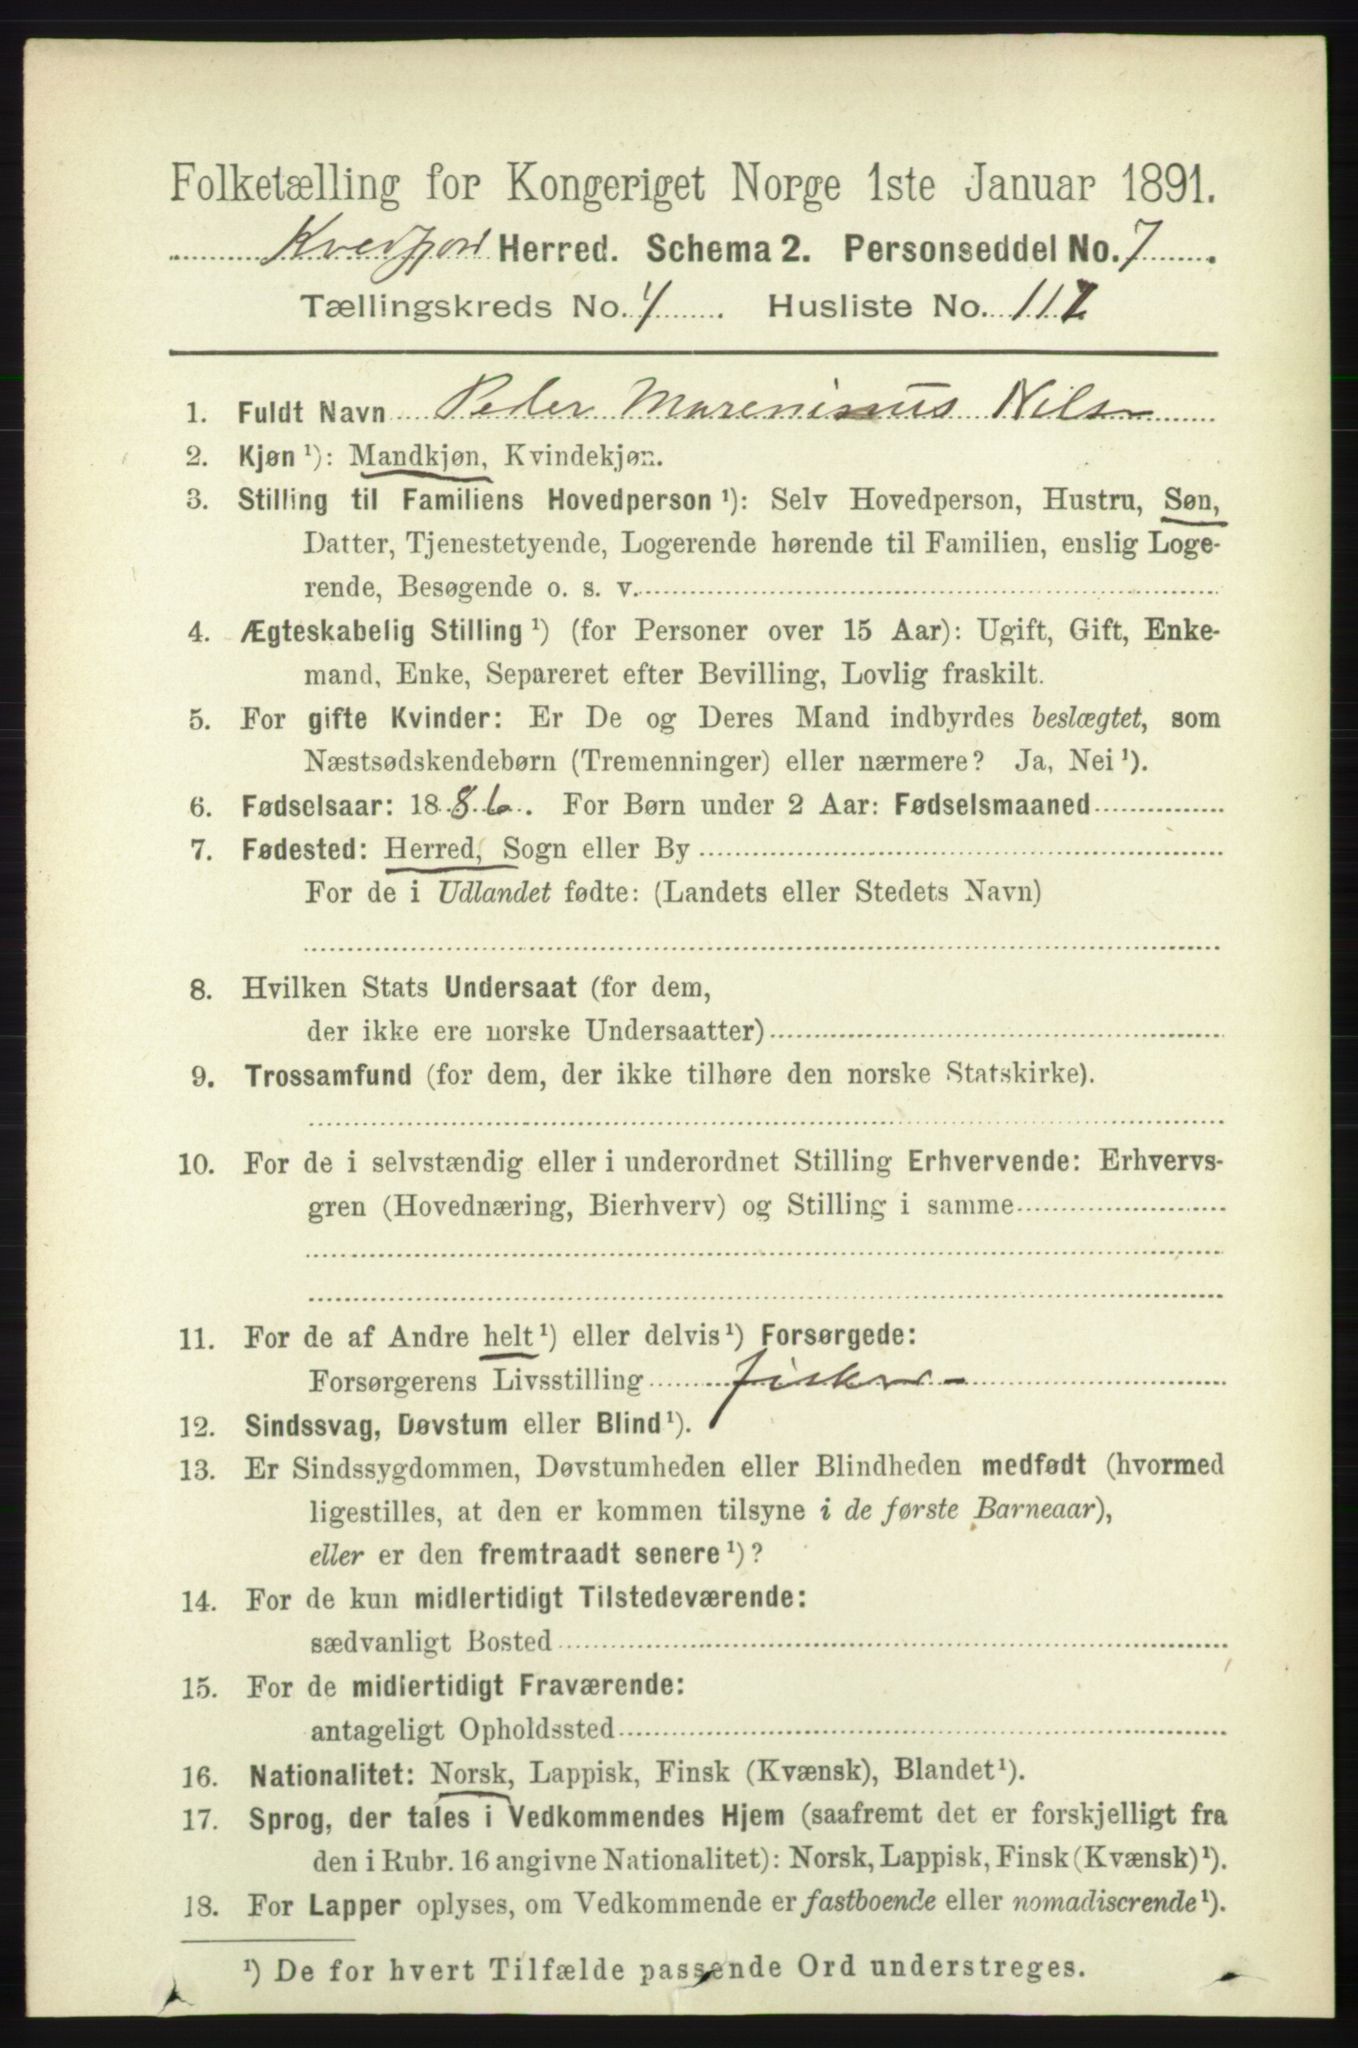 Folketælling for Kongeriget Norge 1ste Januar 1891.
Kvedfjord Herred. Schema 2. Personseddel No. 7
Tællingskreds No. 4 Husliste No. 117
1. Fuldt Navn Peder Marenimus Nilsen
2. Kjøn ¹): Mandkjøn, Kvindekjøn.
3. Stilling til Familiens Hovedperson ¹): Selv Hovedperson, Hustru, Søn,
Datter, Tjenestetyende, Logerende hørende til Familien, enslig Loge-
rende, Besøgende o. s. v.
4. Ægteskabelig Stilling ¹) (for Personer over 15 Aar): Ugift, Gift, Enke-
mand, Enke, Separeret efter Bevilling, Lovlig fraskilt.
5. For gifte Kvinder: Er De og Deres Mand indbyrdes beslægtet, som
Næstsødskendebørn (Tremenninger) eller nærmere? Ja, Nei ¹).
6. Fødselsaar: 1886. For Børn under 2 Aar: Fødselsmaaned
7. Fødested: Herred, Sogn eller By
For de i Udlandet fødte: (Landets eller Stedets Navn)
8. Hvilken Stats Undersaat (for dem,
der ikke ere norske Undersaatter)
9. Trossamfund (for dem, der ikke tilhøre den norske Statskirke).
10. For de i selvstændig eller i underordnet Stilling Erhvervende: Erhvervs-
gren (Hovednæring, Bierhverv) og Stilling i samme
11. For de af Andre helt ¹) eller delvis ¹) Forsørgede:
Forsørgerens Livsstilling fisker
12. Sindssvag, Døvstum eller Blind ¹).
13. Er Sindssygdommen, Døvstumheden eller Blindheden medfødt (hvormed
ligestilles, at den er kommen tilsyne i de første Barneaar),
eller er den fremtraadt senere ¹)?
14. For de kun midlertidigt Tilstedeværende:
sædvanligt Bosted
15. For de midlertidigt Fraværende:
antageligt Opholdssted
16. Nationalitet: Norsk, Lappisk, Finsk (Kvænsk), Blandet ¹).
17. Sprog, der tales i Vedkommendes Hjem (saafremt det er forskjelligt fra
den i Rubr. 16 angivne Nationalitet): Norsk, Lappisk, Finsk (Kvænsk) ¹).
18. For Lapper oplyses, om Vedkommende er fastboende eller nomadiserende ¹).
¹) De for hvert Tilfælde passende Ord understreges.